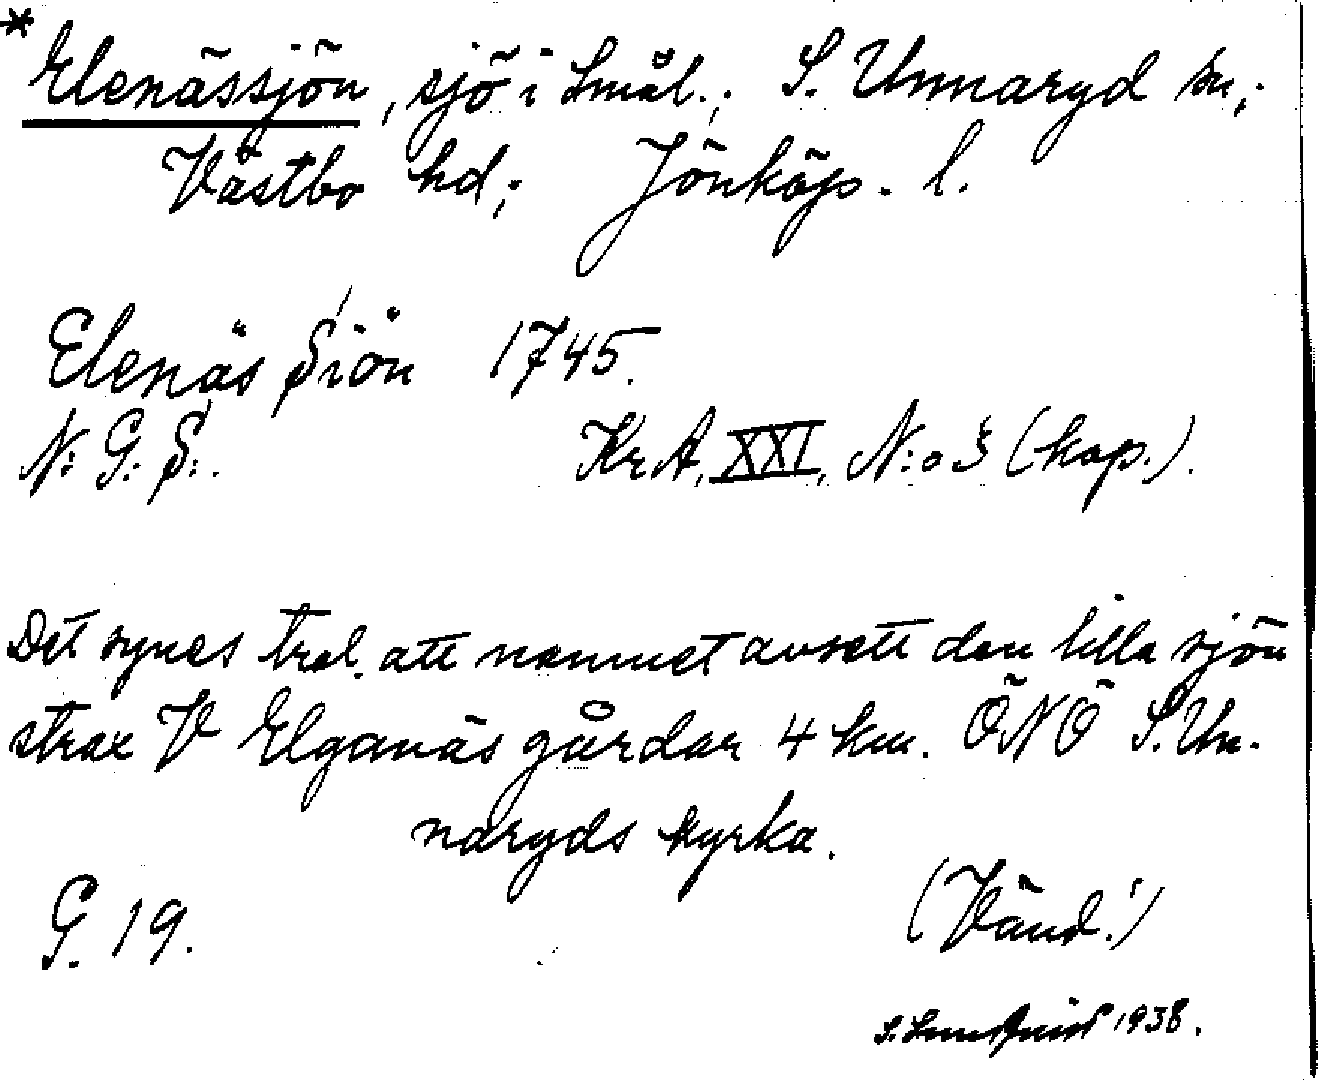 * Elenässjön, sjö i Smål.; S. Unnaryd sn,;
Västbo hd,; Jönköp. l.
Elenäs Siön 1745.
N: G: S:. KrA, XXI, N:o 3 (kop.).
Det synes trol. att namnet avsett den lilla sjön
strax V Elganäs gårdar 4 km. ÖNÖ S. Un-
naryds kyrka.
G. 19. (Vänd!)
S. 1938.